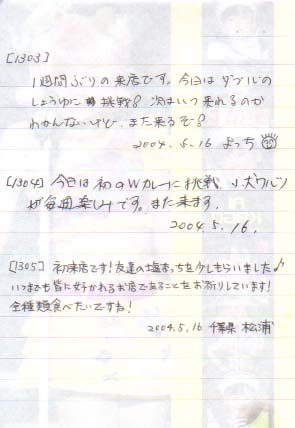 [1303]
1週間ぶりの来店です。今日はダブルの
しょうゆに挑戦?次はいつ来れるのか
わかんないけど、また来るぞ?
2004.5.16 よっち
[1304] 今日は初のWカレーに挑戦、
が毎週楽しみです。また来ます。
2004.5.16.
[1305] 初来店です!友達の塩もっちを少しもらいました♪
いつまでも皆に好かれるお店であることをお祈りしています!
全種類食べたいですね!
2004.5.16 千葉県 松浦